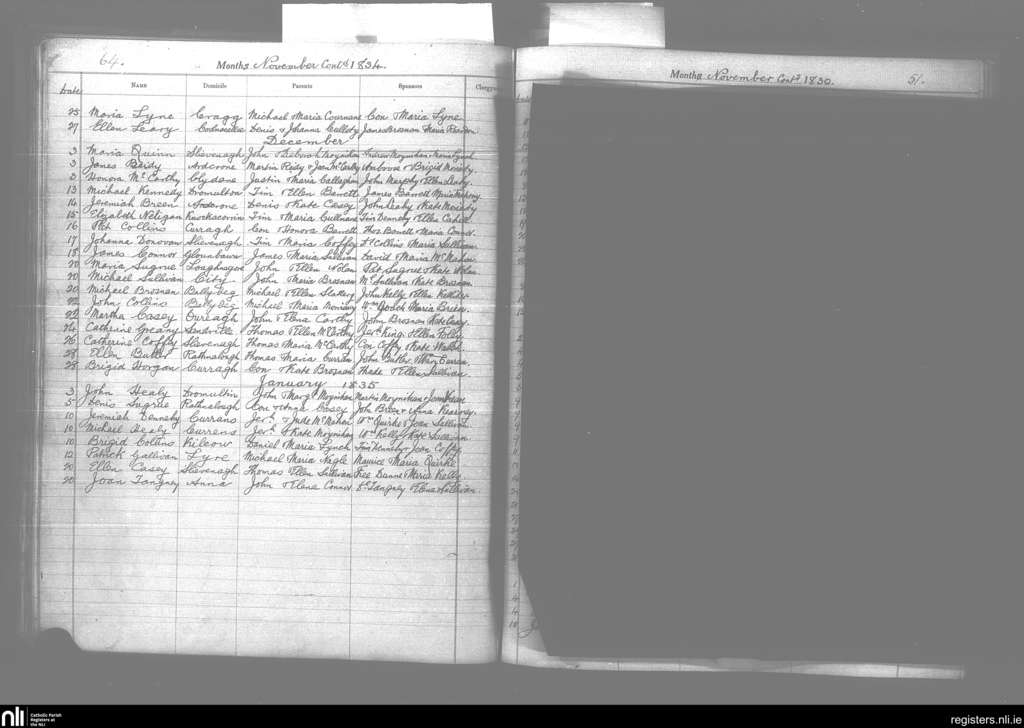 64.
Months November Contd 1834.
Date Name Domicile Parents Sponsors Clergyman
25 Maria Lyne Cragg Michael Maria Cournane Con & Maria Lyne
27 Ellen Leary Denis & Johanna James Brosnan Maria Reardon
December
3 Maria Quinn Slievenagh John Moynihan Andrew Moynihan Maria Lynch
3 James Reidy Ardcrone Martin Reidy & Joan McCarthy Ambrose & Brigid Moriarty
3 Honora McCarthy Clydane Justin Maria Callaghan John Murphy Ellen Leahy
13 Michael Kennedy Dromulton Tim & Ellen Barrett James Barrett Maria
14 Jeremiah Breen Ardcrone Denis & Kate Casey John Leahy & Kate Moriarty
15 Elizabeth Neligan Tim & Maria Cullinane Tim Dennehy & Ellen Cahill
16 Pat Collins Curragh Con & Honora Barrett Thos. Barrett & Maria Connor
17 Johanna Donovan Slievenagh Tim Maria Coffey Collins Maria Sullivan
18 James Connor Glounbawn James Maria Sullivan David & Maria McMahon
20 Maria Sugrue John & Ellen Nolan Pat Sugrue & Kate Nolan
20 Michael Sullivan City John Maria Brosnan Ml Sullivan Kate Brosnan
20 Michael Brosnan Ballybeg Michael & Ellen Slattery John Kelly & Ellen
22 John Collins Ballybeg Michael Maria Moriarty Wm Maria Brien
22 Martha Casey Cureagh John & Elena Carthy John Brosnan Kate Casey
24 Catherine Greany Sandville Thomas & Ellen McCarthy Jerh King & Ellen Foley
26 Catherine Coffey Slievenagh Thomas Maria McCarthy Con Coffy & Kate Walsh
28 Ellen Butler Rathnalough Thomas Maria Curran John Butler Mary Curran
28 Brigid Horgan Curragh Con & Kate Brosnan Thade & Ellen Sullivan
January 1835
3 John Healy Dromultin John Margt Moynihan Martin Moynihan & Joan
5 Denis Sugrue Rathnalough Con & Casey John Breen & Anna Kearney
10 Jeremiah Dennehy Currans Jerh & Jude McMahon Wm Quirke & Joan Sullivan
10 Michael Healy Currens Jerh & Kate Moynihan Wm Kelly & Kate Sullivan
10 Brigid Collins Kilcow Daniel & Maria Lynch Tim Kennedy & Joan Coffey
12 Patrick Sullivan Lyre Michael Maria Nagle Maurice Maria Quirke
20 Ellen Casey Slievenagh Thomas & Ellen Sullivan Dunne & Maria Kelly
20 Joan Tangney Anna John & Elena Connor Tangney & Elena Sullivan
Months November Contd 1830. 51.
nli Catholic Parish Registers at the NLI
registers.nli.ie